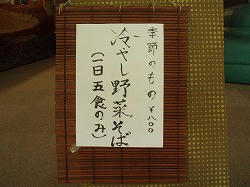 季節のもの ¥八〇〇
冷やし野菜そば
(一日五食のみ)